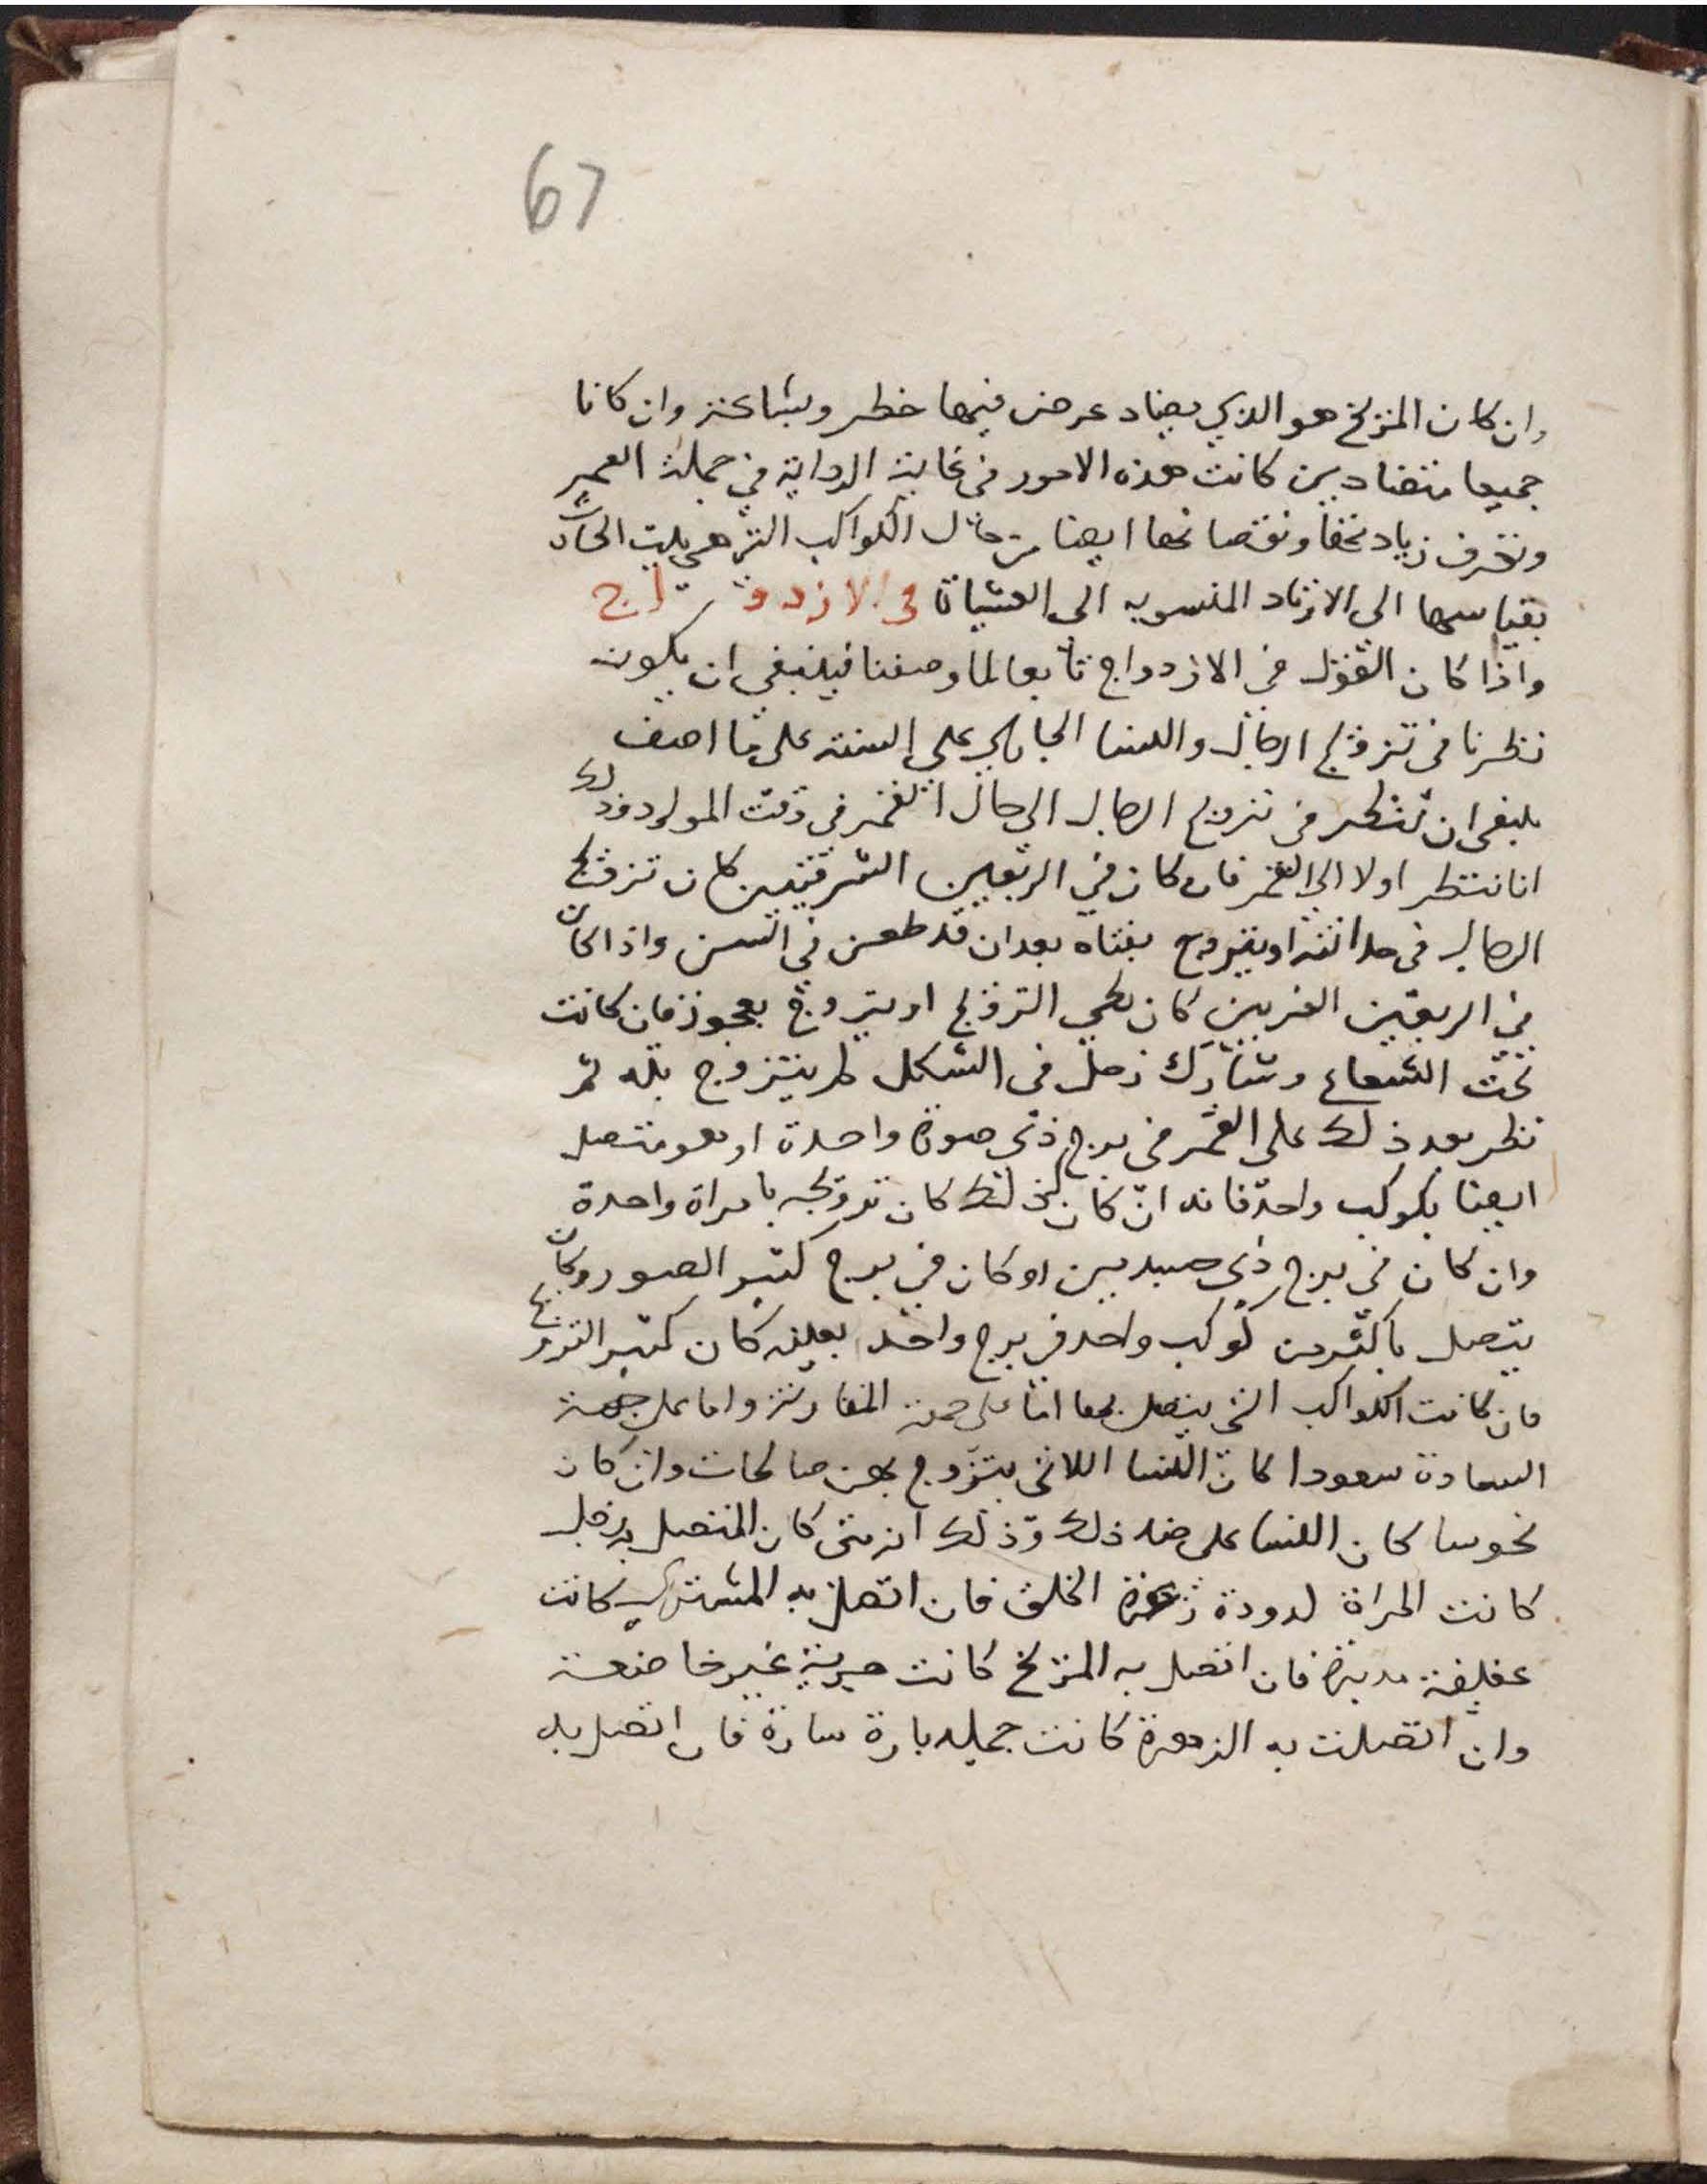 67
وان كان المريخ هو الذي يضاد عرض فيها خطر وبشاعة وان كانا
جميعا متضادين كانت هذه الامور في غاية الرداية في جملة العمر
ونعرف زيادتها ونقصانها ايضا من حال الكواكب التي هي بليت الحاث
بقياسها الى الاوتاد المنسوبه الى العشيات في الازدواج
واذا كان القول في الازدواج تابعا لما وصفنا فينبغي ان يكون
نظرنا في تزويج الرجال والنسا الجاري على السنة على ما اصف
ينبغي ان ننظر في تزويج الرجال الى حال القمر في وقت المولود وذلك
انا ننظر اولا الى القمر فان كان في الربعين الشرقيين كان تزويج
الرجال في حداثته او يتزوج بفتاه بعد ان قد طعن في السن واذا كان
في الربعين الغربيين كان بطي التزويج او يتزوج بعجوز فان كانت
تحت الشعاع وشارك زحل في الشكل لم يتزوج بته ثم
نظر بعد ذلك على القمر في برج ذي صورة واحدة او هو متصل
ايضا بكوكب واحد فانه ان كان كذلك كان تزويجه بامراة واحدة
وان كان في برج ذي جسدين او كان في برج كثير الصور وكان
يتصل باكثر من كوكب واحد في برج واحد بعينه كان كثير التزويج
فان كانت الكواكب التي يتصل بها اما على جهة المقارنة واما على جهة
السعادة سعودا كان النسا اللاتي يتزوج بهن صالحات وان كان
نحوسا كان النسا على ضد ذلك وذلك انه متى كان المتصل به زحل
كانت المراة لدودة زعرة الخلق فان اتصل به المشتري كانت
عفيفة مدبرة فان اتصل به المريخ كانت جرية غير خاضعة
وان اتصلت به الزهرة كانت جميله بارة سارة فان اتصل به